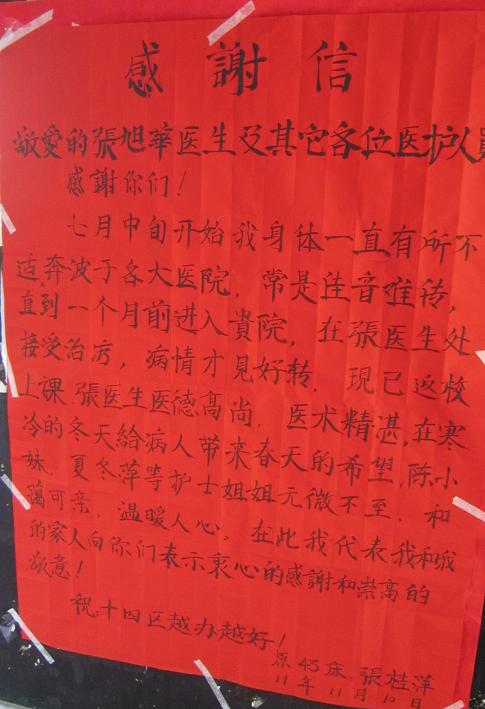 感謝信
敬爱的張旭華医生及其它各位医护人員
感謝你们！
七月中旬开始我身体一直有所不
适，奔波于各大医院，常是佳音难转，
直到一个月前进入貴院，在張医生处
接受治疗，病情才見好转．現已返校
上课．張医生医德高尚．医术精湛，在寒
冷的冬天給病人带来春天的希望，陈小
妹．夏冬萍等护士姐姐无微不至．和
蔼可亲．温暖人心。在此我代表我和我
的家人向你们表示衷心的感謝和崇高的
敬意！
祝十四区越办越好！
原45床．張桂萍
11年11月10日